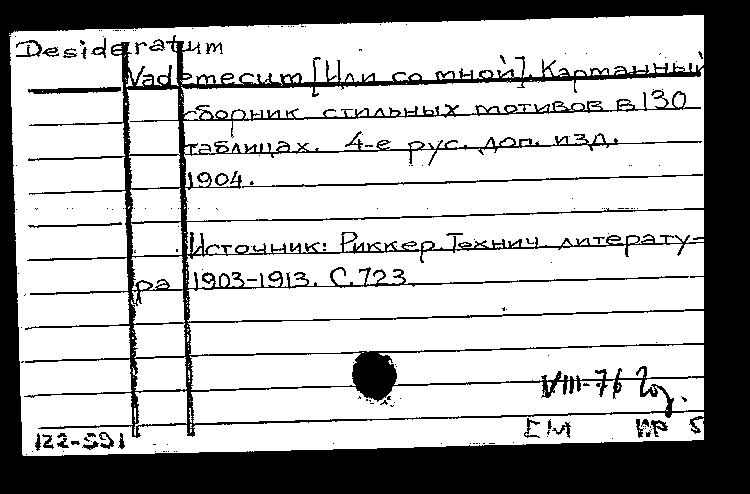 Desideratum
Vademecum [Или со мной]. Карманный
сборник стильных мотивов в 130
таблицах. 4-е рус. доп. изд.
1904.
Источник: Риккер. Технич. литерату-
ра 1903-1913. С.723.
VIII-76
122-591
ИР 5